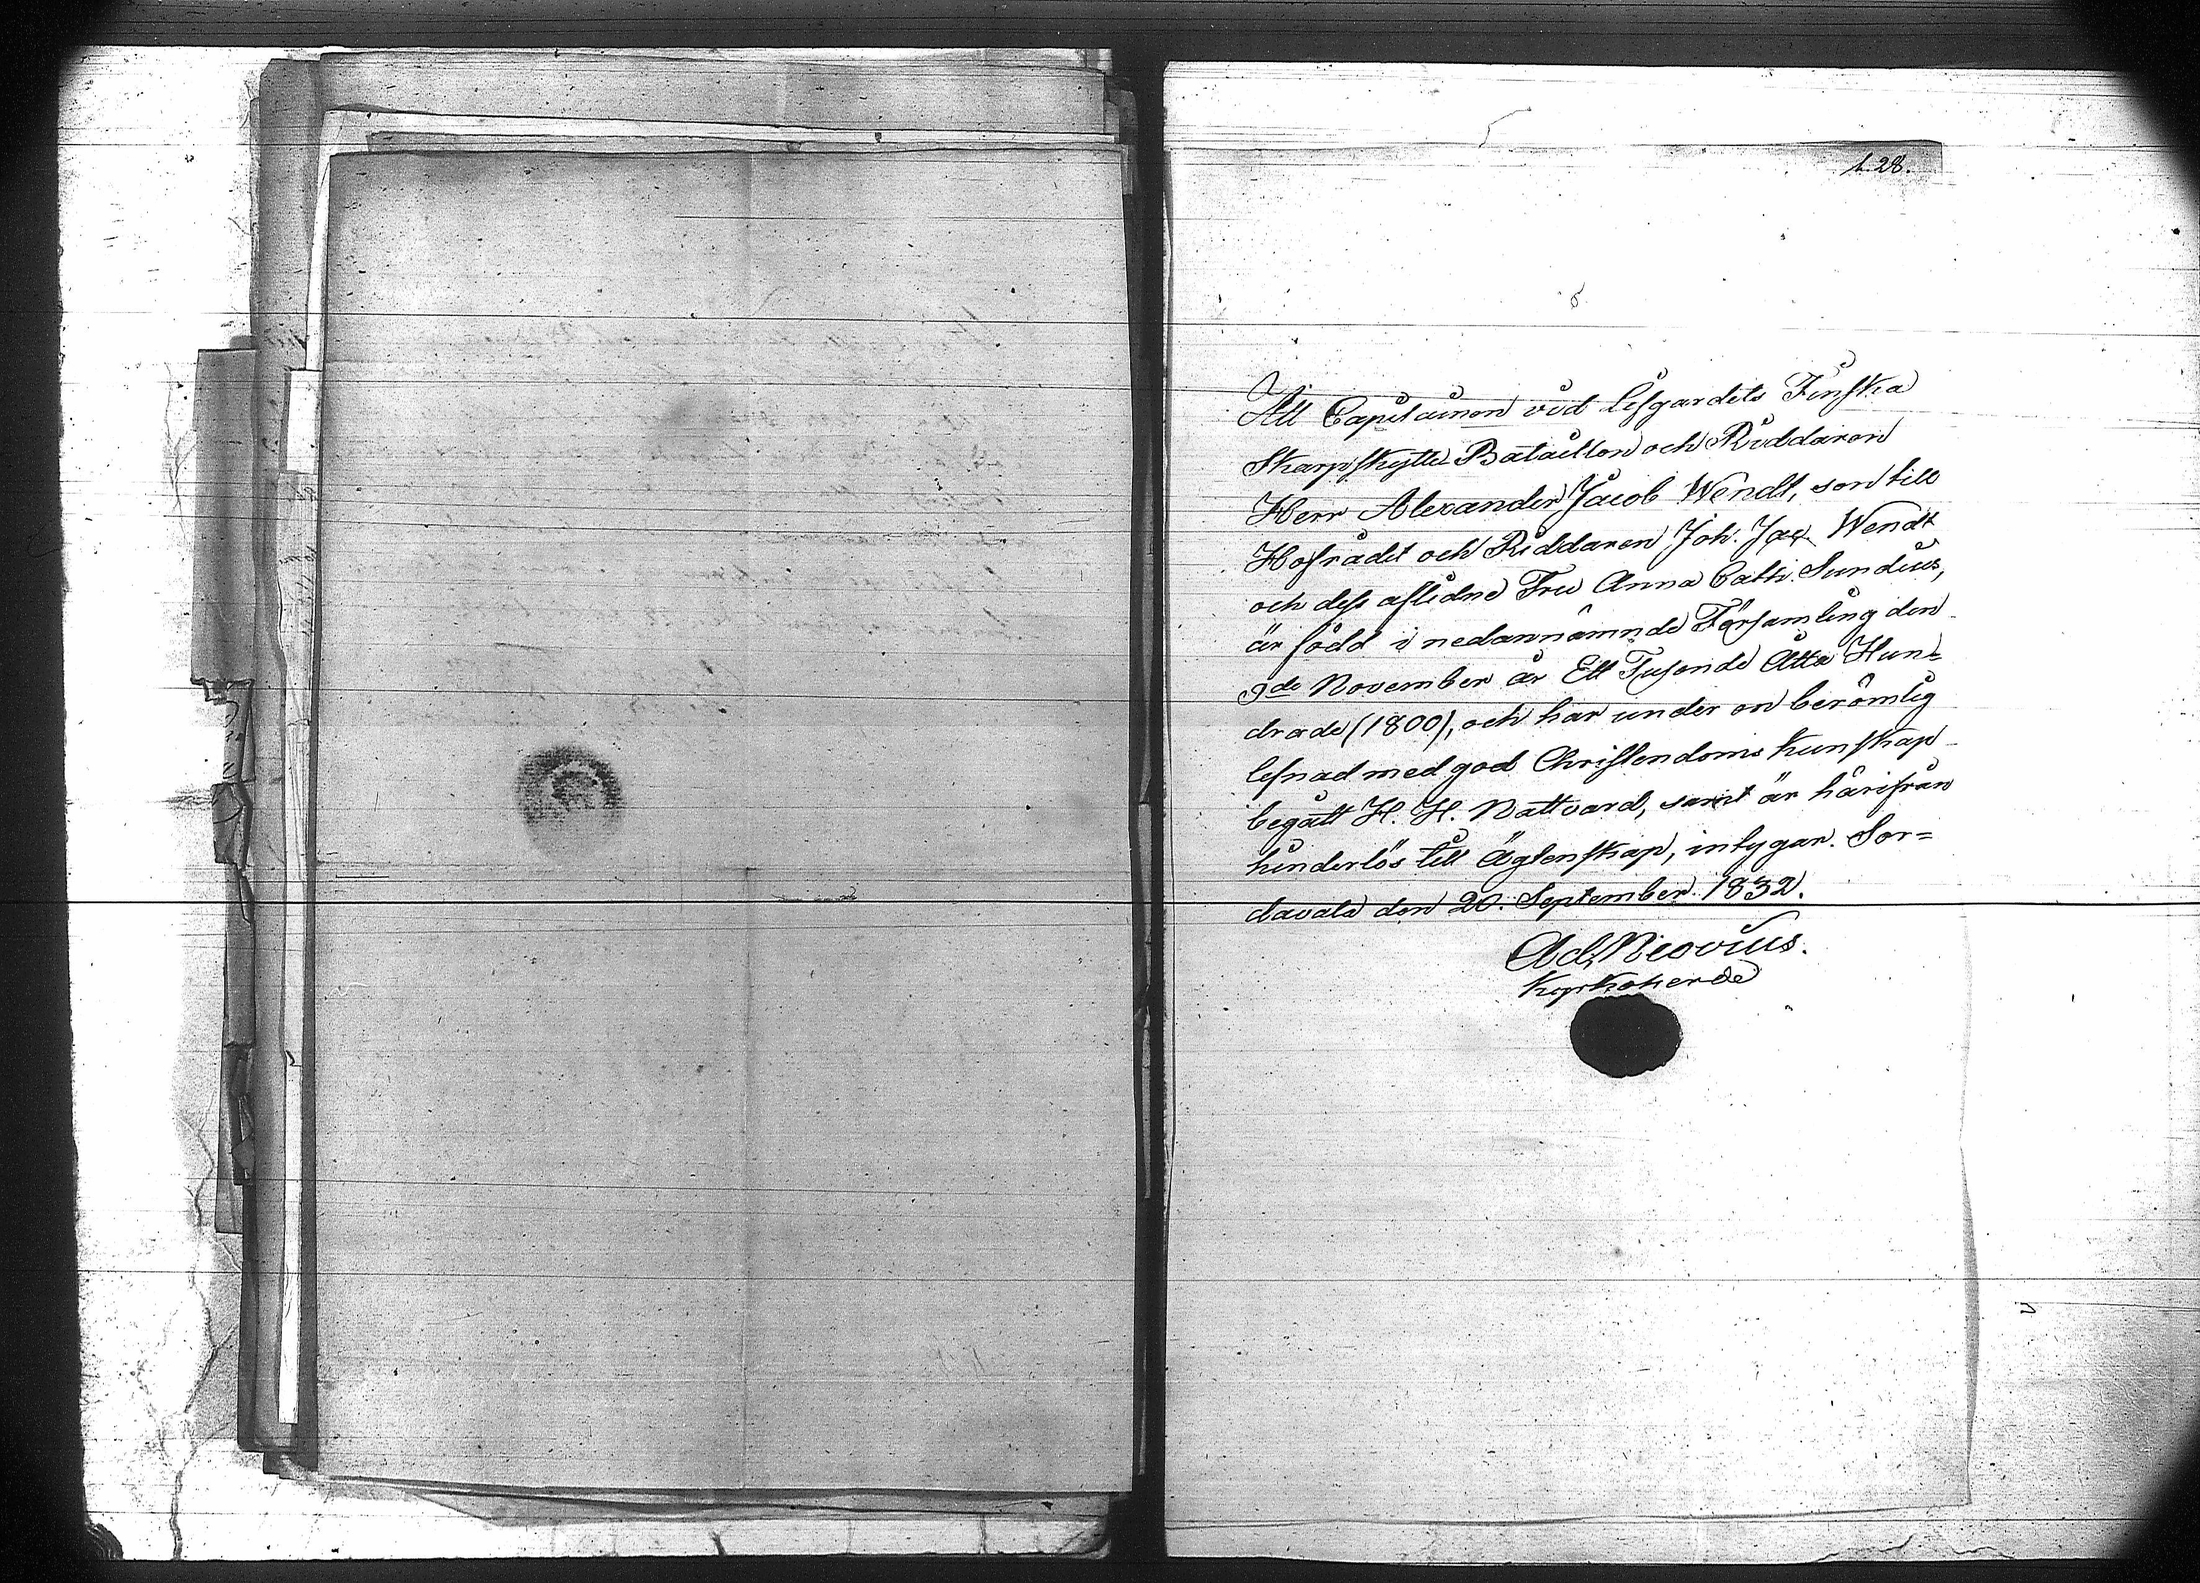 1.28.
Att Capitainen vid Lifgardets Finska
Skarpskytte Bataillon och Riddaren
Herr Alexander Jacob Wendt, son till
Hofrådet och Riddaren Joh. Jac. Wendt
och dess aflidne Fru Anna Cath. Sundius,
är född i nedannämnde Församling den
9de November år Ett Tusende Åtta Hun-
drade (1800), och har under en berömlig
lefnad med god Christendoms kunskap
begått H. H. Nattvard, samt är härifrån
hinderlös till Ägtenskap, intygar. Sor=
davala den 20. September 1832.
Ad. Neovius.
Kyrkoherde